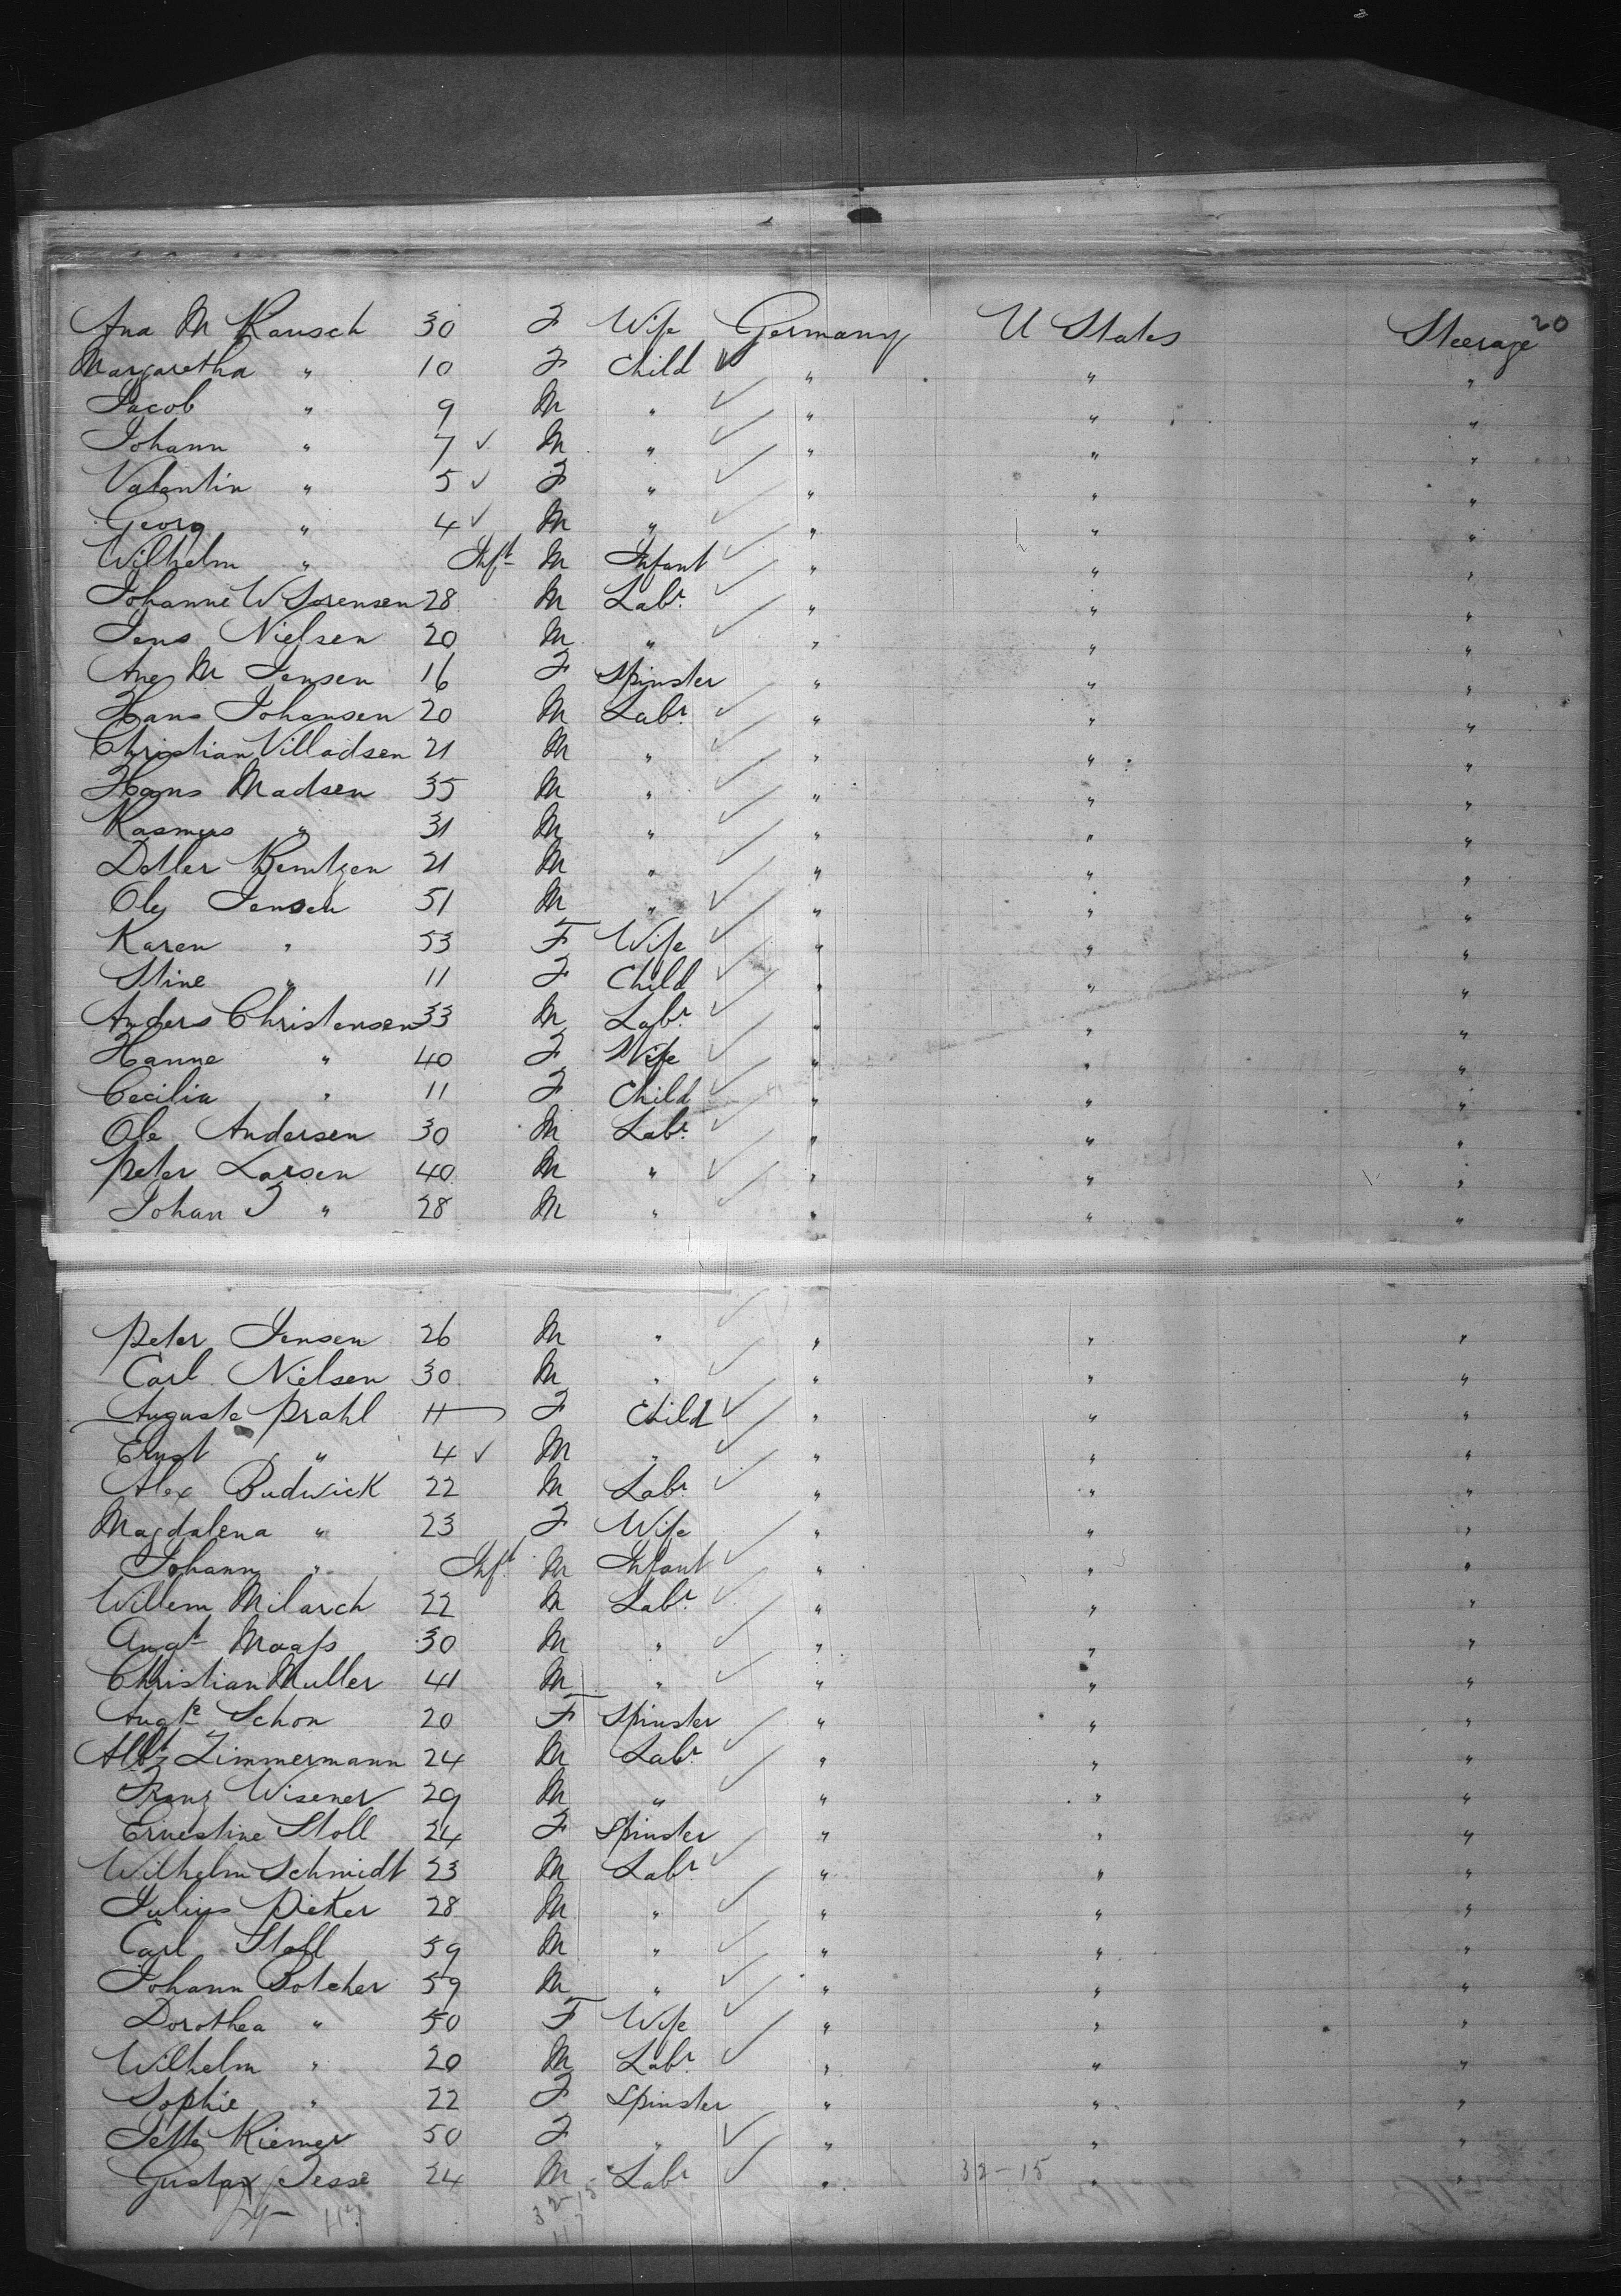 20
Ana M Rausch 30 F Wife Germany U States Steerage
Margaretha " 10 F Child " " "
Jacob " 9 M " " " "
Johann " 7 M " " " "
Valentin " 5 F " " " "
Georg " 4 M " " " "
Wilhelm " Inft M Infant " " "
Johanne W Sorensen 28 M Labr. " " "
Jens Nielsen 20 M " " " "
Ane M Jensen 16 F Spinster " " "
Hans Johansen 20 M Labr. " " "
Christian Villadsen 21 M " " " "
Hans Madsen 35 M " " " "
Rasmus " 31 M " " " "
Detler 21 M " " " "
Ole Jensen 51 M " " " "
Karen " 53 F Wife " " "
Stine " 11 F Child " " "
Anders Christensen 33 M Labr. " " "
Hanne " 40 F Wife " " "
Cecilia " 11 F Child " " "
Ole Andersen 30 M Labr. " " "
Peter Larsen 40 M " " " "
Johan J " 28 M " " " "
Peter Jensen 26 M " " " "
Carl Nielsen 30 M " " " "
Auguste Prahl 11 F Child " " "
Ernst " 4 M " " " "
Alex Budwick 22 M Labr. " " "
Magdalena " 23 F Wife " " "
Johann " Inft M Infant " " "
Willem Milarch 22 M Labr. " " "
Augt Maaß 30 M " " " "
Christian Muller 41 M " " " "
Augte Schon 20 F Spinster " " "
Albt Zimmermann 24 M Labr. " " "
Franz Wisener 29 M " " " "
Ernestine Stoll 24 F Spinster " " "
Wilhelm Schmidt 23 M Labr. " " "
Julius Pieker 28 M " " " "
Carl Stoll 59 M " " " "
Johann Botcher 59 M " " " "
Dorothea " 50 F Wife " " "
Wilhelm " 20 M Labr. " " "
Sophie " 22 F Spinster " " "
Jette Riemer 50 F " " " "
Gustav Jesse 24 M Labr " " "
32-15
117 32-15
117